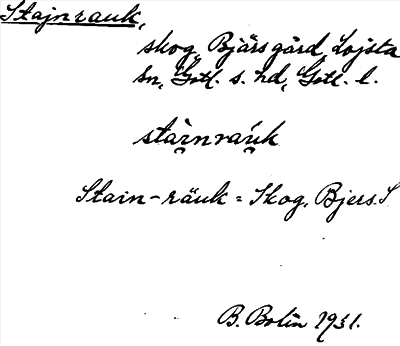 Stajnrauk,
skog, Bjärsgård, Lojsta
sn, Gotl. s. hd, Gotl. l.
stài̯nráu̯k
Stain-räuk = Skog, Bjers. S
B. Bolin 1931.